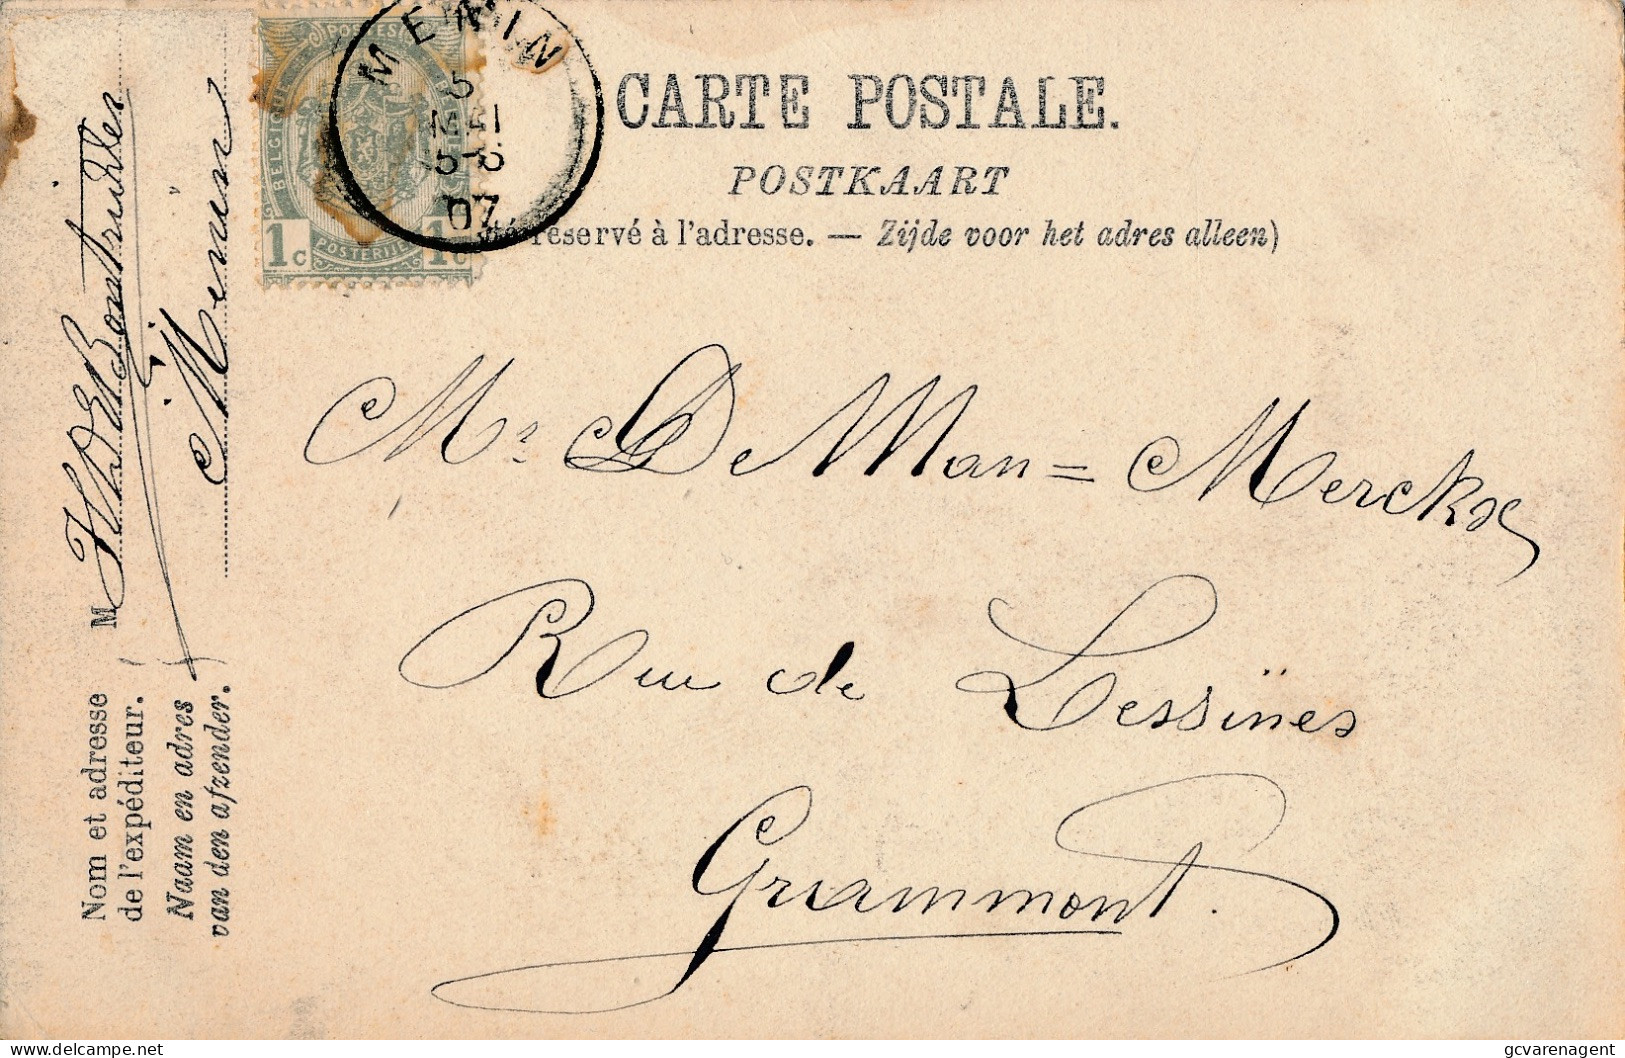 CARTE POSTALE.
POSTKAART
réservé à l'adresse. — Zijde voor het adres alleen)
POSTES
BELGIQUE
1c
POSTERIJEN
1c
MENIN
5
MEI
07
Mr De Man = Merckx
Rue de Lessines
Grammont.
Nom et adresse
de l'expéditeur.
Naam en adres
van den afzender.
M
Menin
gcvarenagent